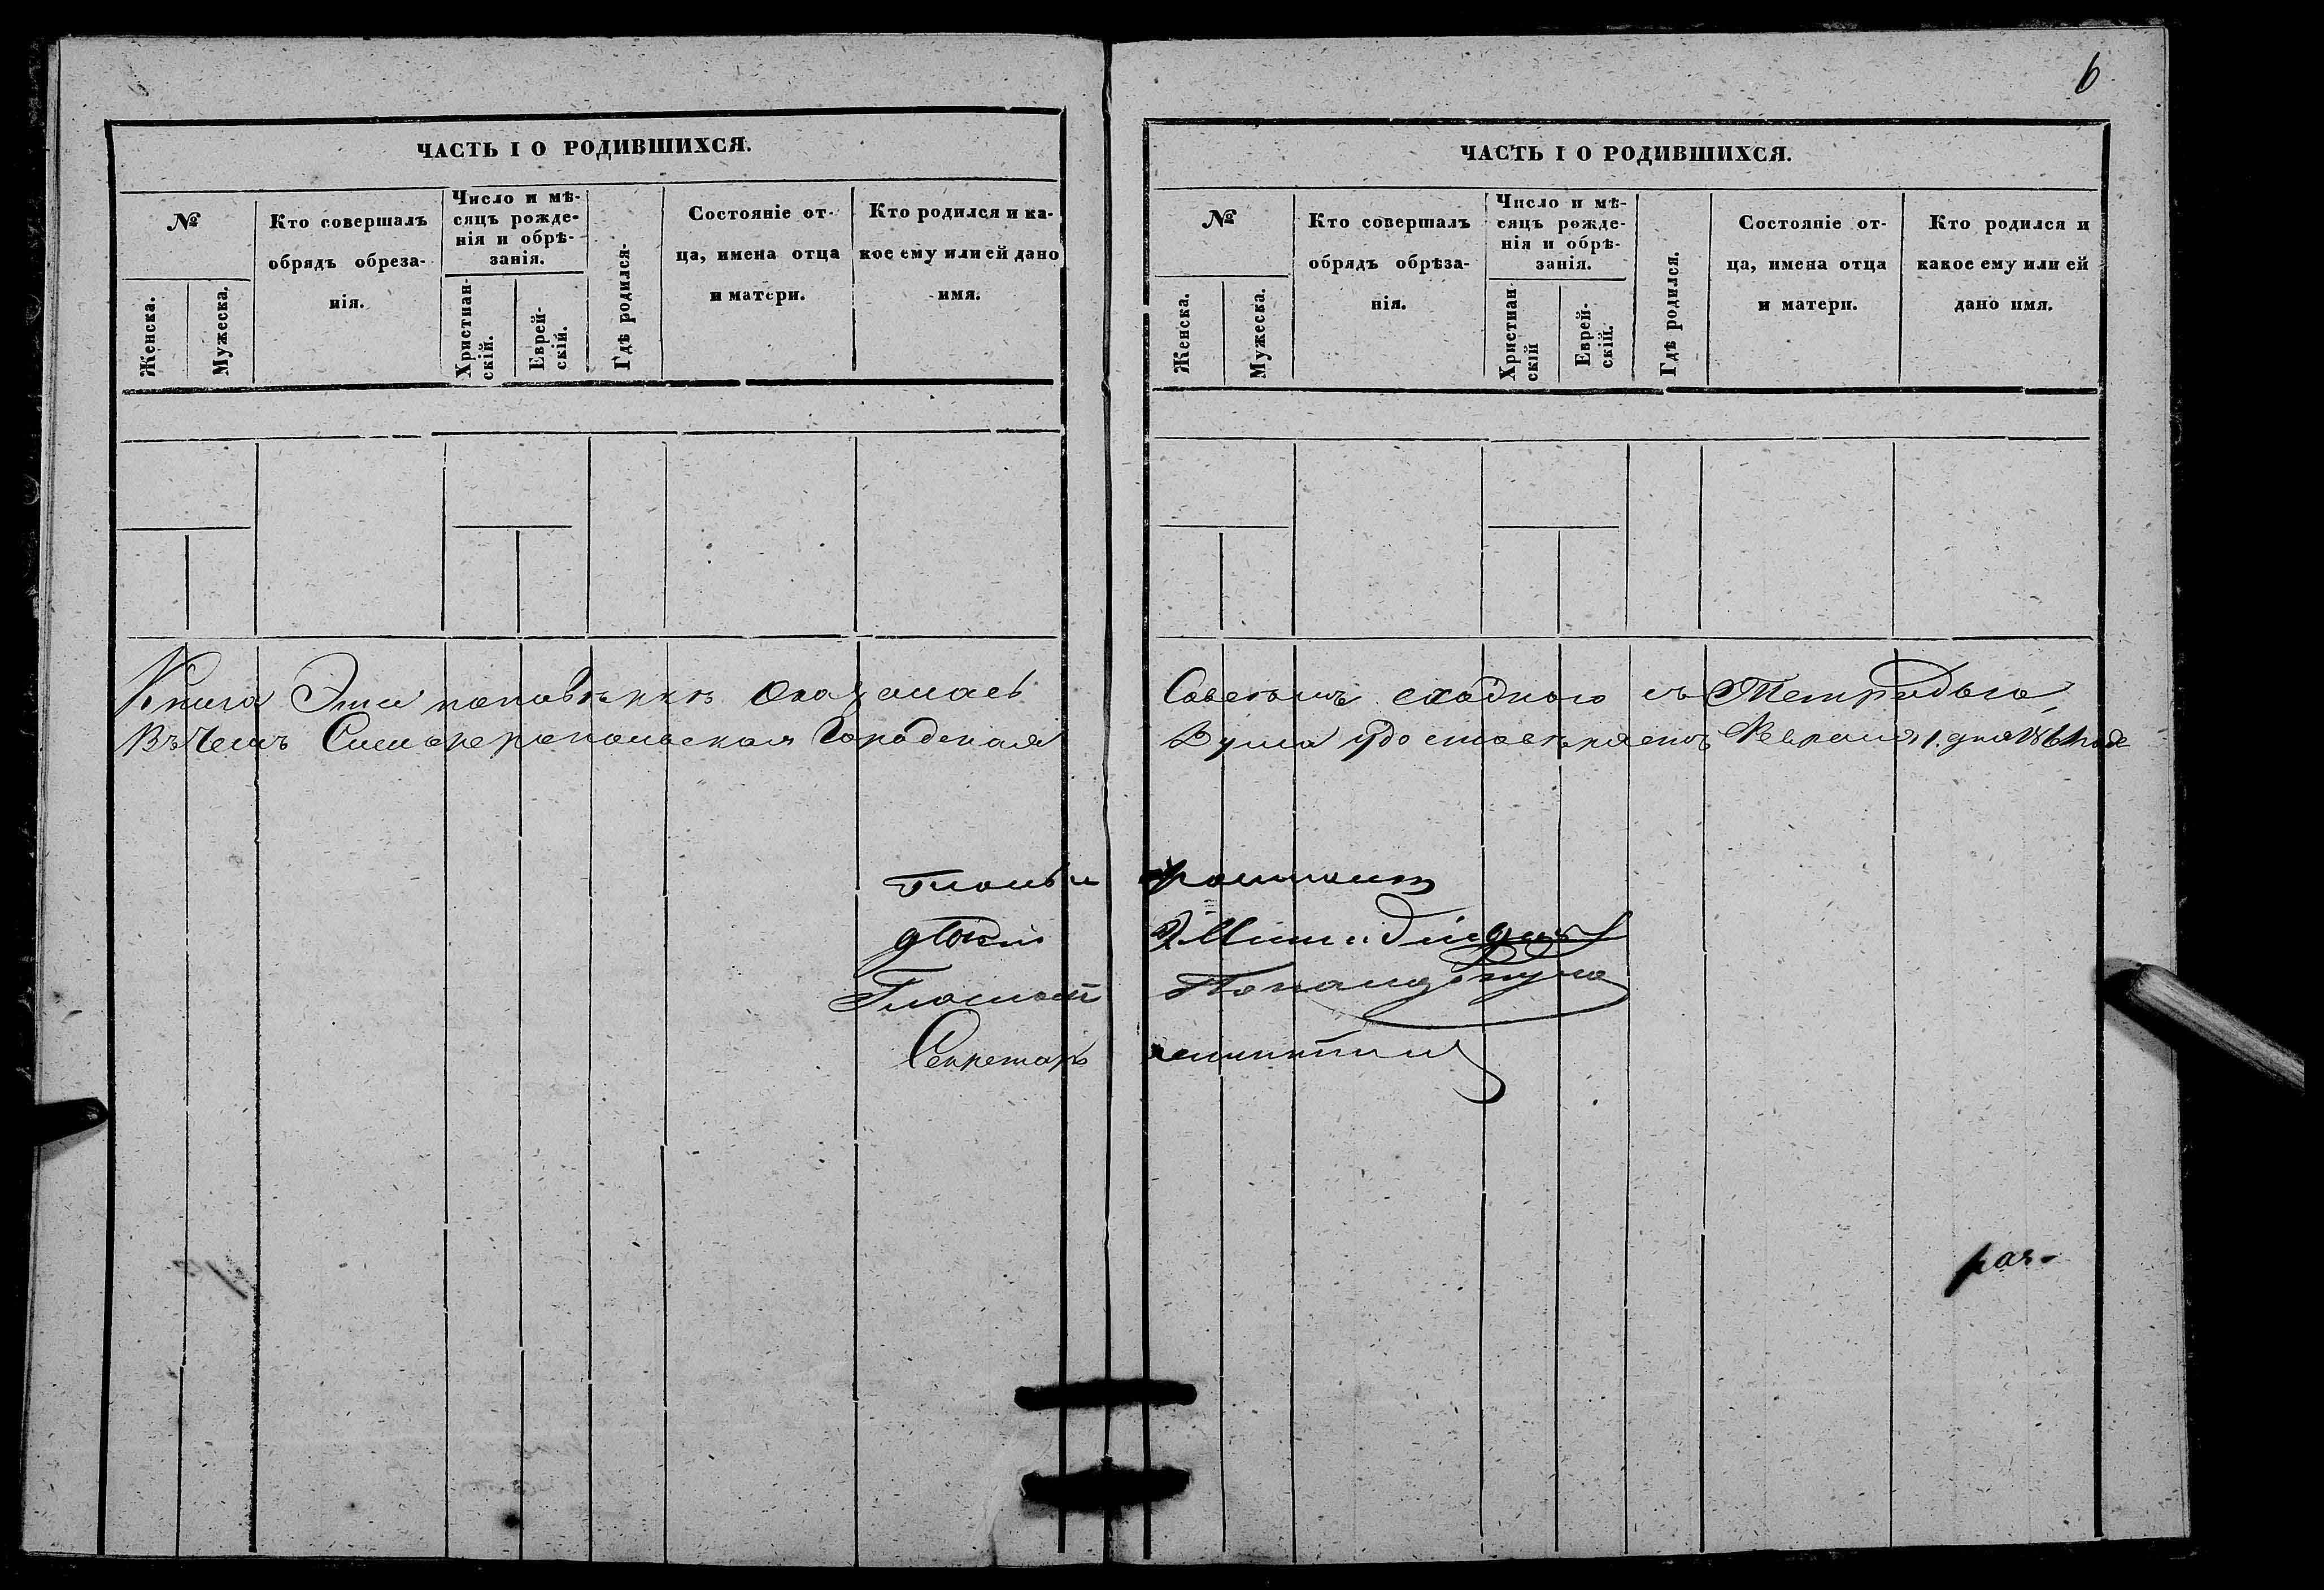 6
ЧАСТЬ I О РОДИВШИХСЯ.
№
Женска.
Мужеска.
Кто совершалъ
обрядъ обреза-
нія.
Число и мѣ-
сяцъ рожде-
нія и обрѣ-
занія.
Христиан-
скій.
Еврей-
скій.
Гдѣ родился.
Состояніе от-
ца, имена отца
и матери.
Кто родился и ка-
кое ему или ей дано
имя.
ЧАСТЬ I О РОДИВШИХСЯ.
№
Женска.
Мужеска.
Кто совершалъ
обрядъ обрѣза-
нія.
Число и мѣ-
сяцъ рожде-
нія и обрѣ-
занія.
Христиан-
скій
Еврей-
скій.
Гдѣ родился.
Состояніе от-
ца, имена отца
и матери.
Кто родился и
какое ему или ей
дано имя.
Книга Эта по повѣркѣ оказалась
сходною съ Тетрадью,
Въ чемъ Симферопольская Городская
Дума удостовѣряетъ Февраля 1. дня 1861 года
Гласный
Секретарь
раз-